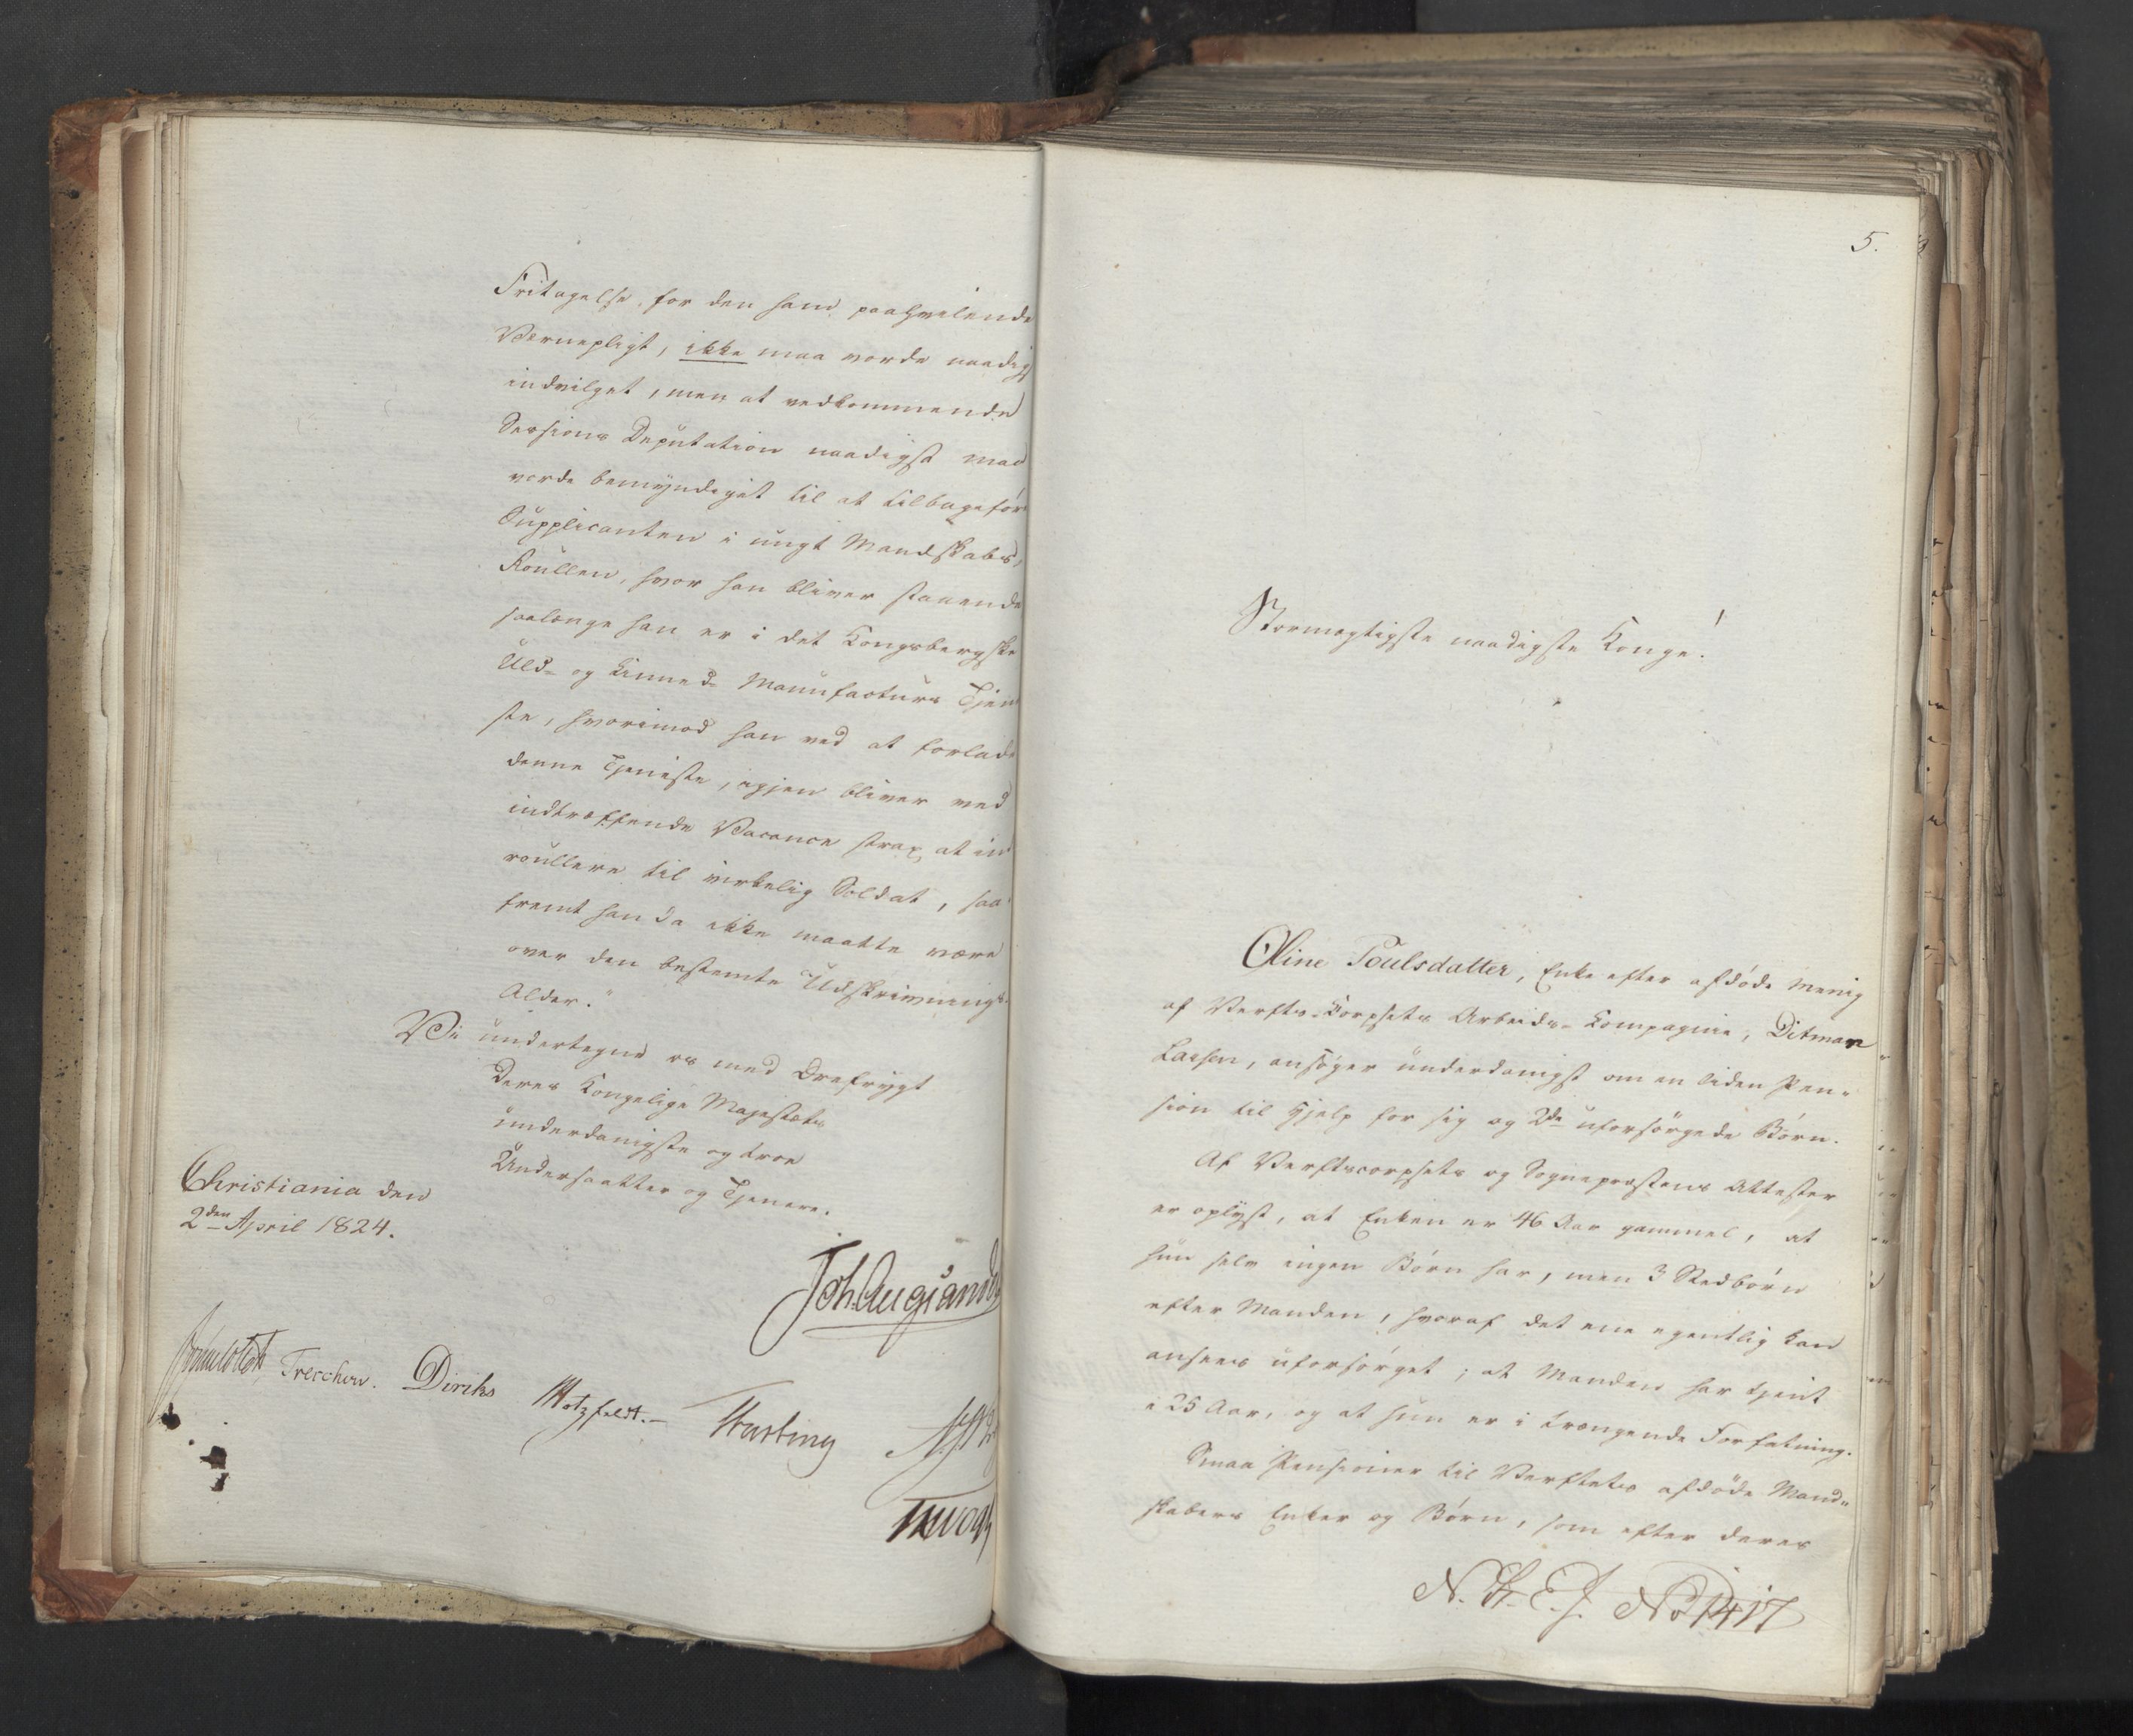 Fritagelse, for den ham paahvilende
Vernepligt, ikke maa vorde naadigst
indvilget, men at vedkommende
Sessions Deputation naadigst maa
vorde bemyndiget til at tilbageføre
Supplicanten i ungt Mandskabs
Roullen, hvor han bliver staaende
saalænge han er i det Kongsbergske
Uld- og Linned- Manufacturs Tjene
ste, hvorimod han ved at forlade
denne Tjeneste, igjen bliver ved
indtræffende Vacance strax at in
roullere til virkelig Soldat, saa
fremt han da ikke maatte være
over den bestemte Udskrivnings
Alder."
Vi undertegne os med Ærefrygt
Deres Kongelige Majestæts
underdanigste og troe
Undersaatter og Tjenere.
Christiania den
2den April 1824.
Joh. Aug. Sand
Treschow. Diriks Motzfeldt. Fasting
5.
Stormægtigste naadigste Konge!
Oline Poulsdatter, Enke efter afdøde Menig
af Verfts-Korpsets Arbeids-Kompagnie, Ditman
Larsen, ansøger underdanigst om en liden Pen-
sion til Hjelp for sig og 2de uforsørgede Børn.
Af Verftscorpsets og Sognepræstens Attester
er oplyst, at Enken er 46 Aar gammel, at
hun selv ingen Børn har, men 3 Stedbørn
efter Manden, hvoraf det ene egentlig kan
ansees uforsørget; at Manden har tjent
i 25 Aar, og at hun er i trængende Forfatning.
Smaa Pensioner til Verftets afdøde Mand-
skabers Enker og Børn, som efter deres
N. St. E. J. No 1417